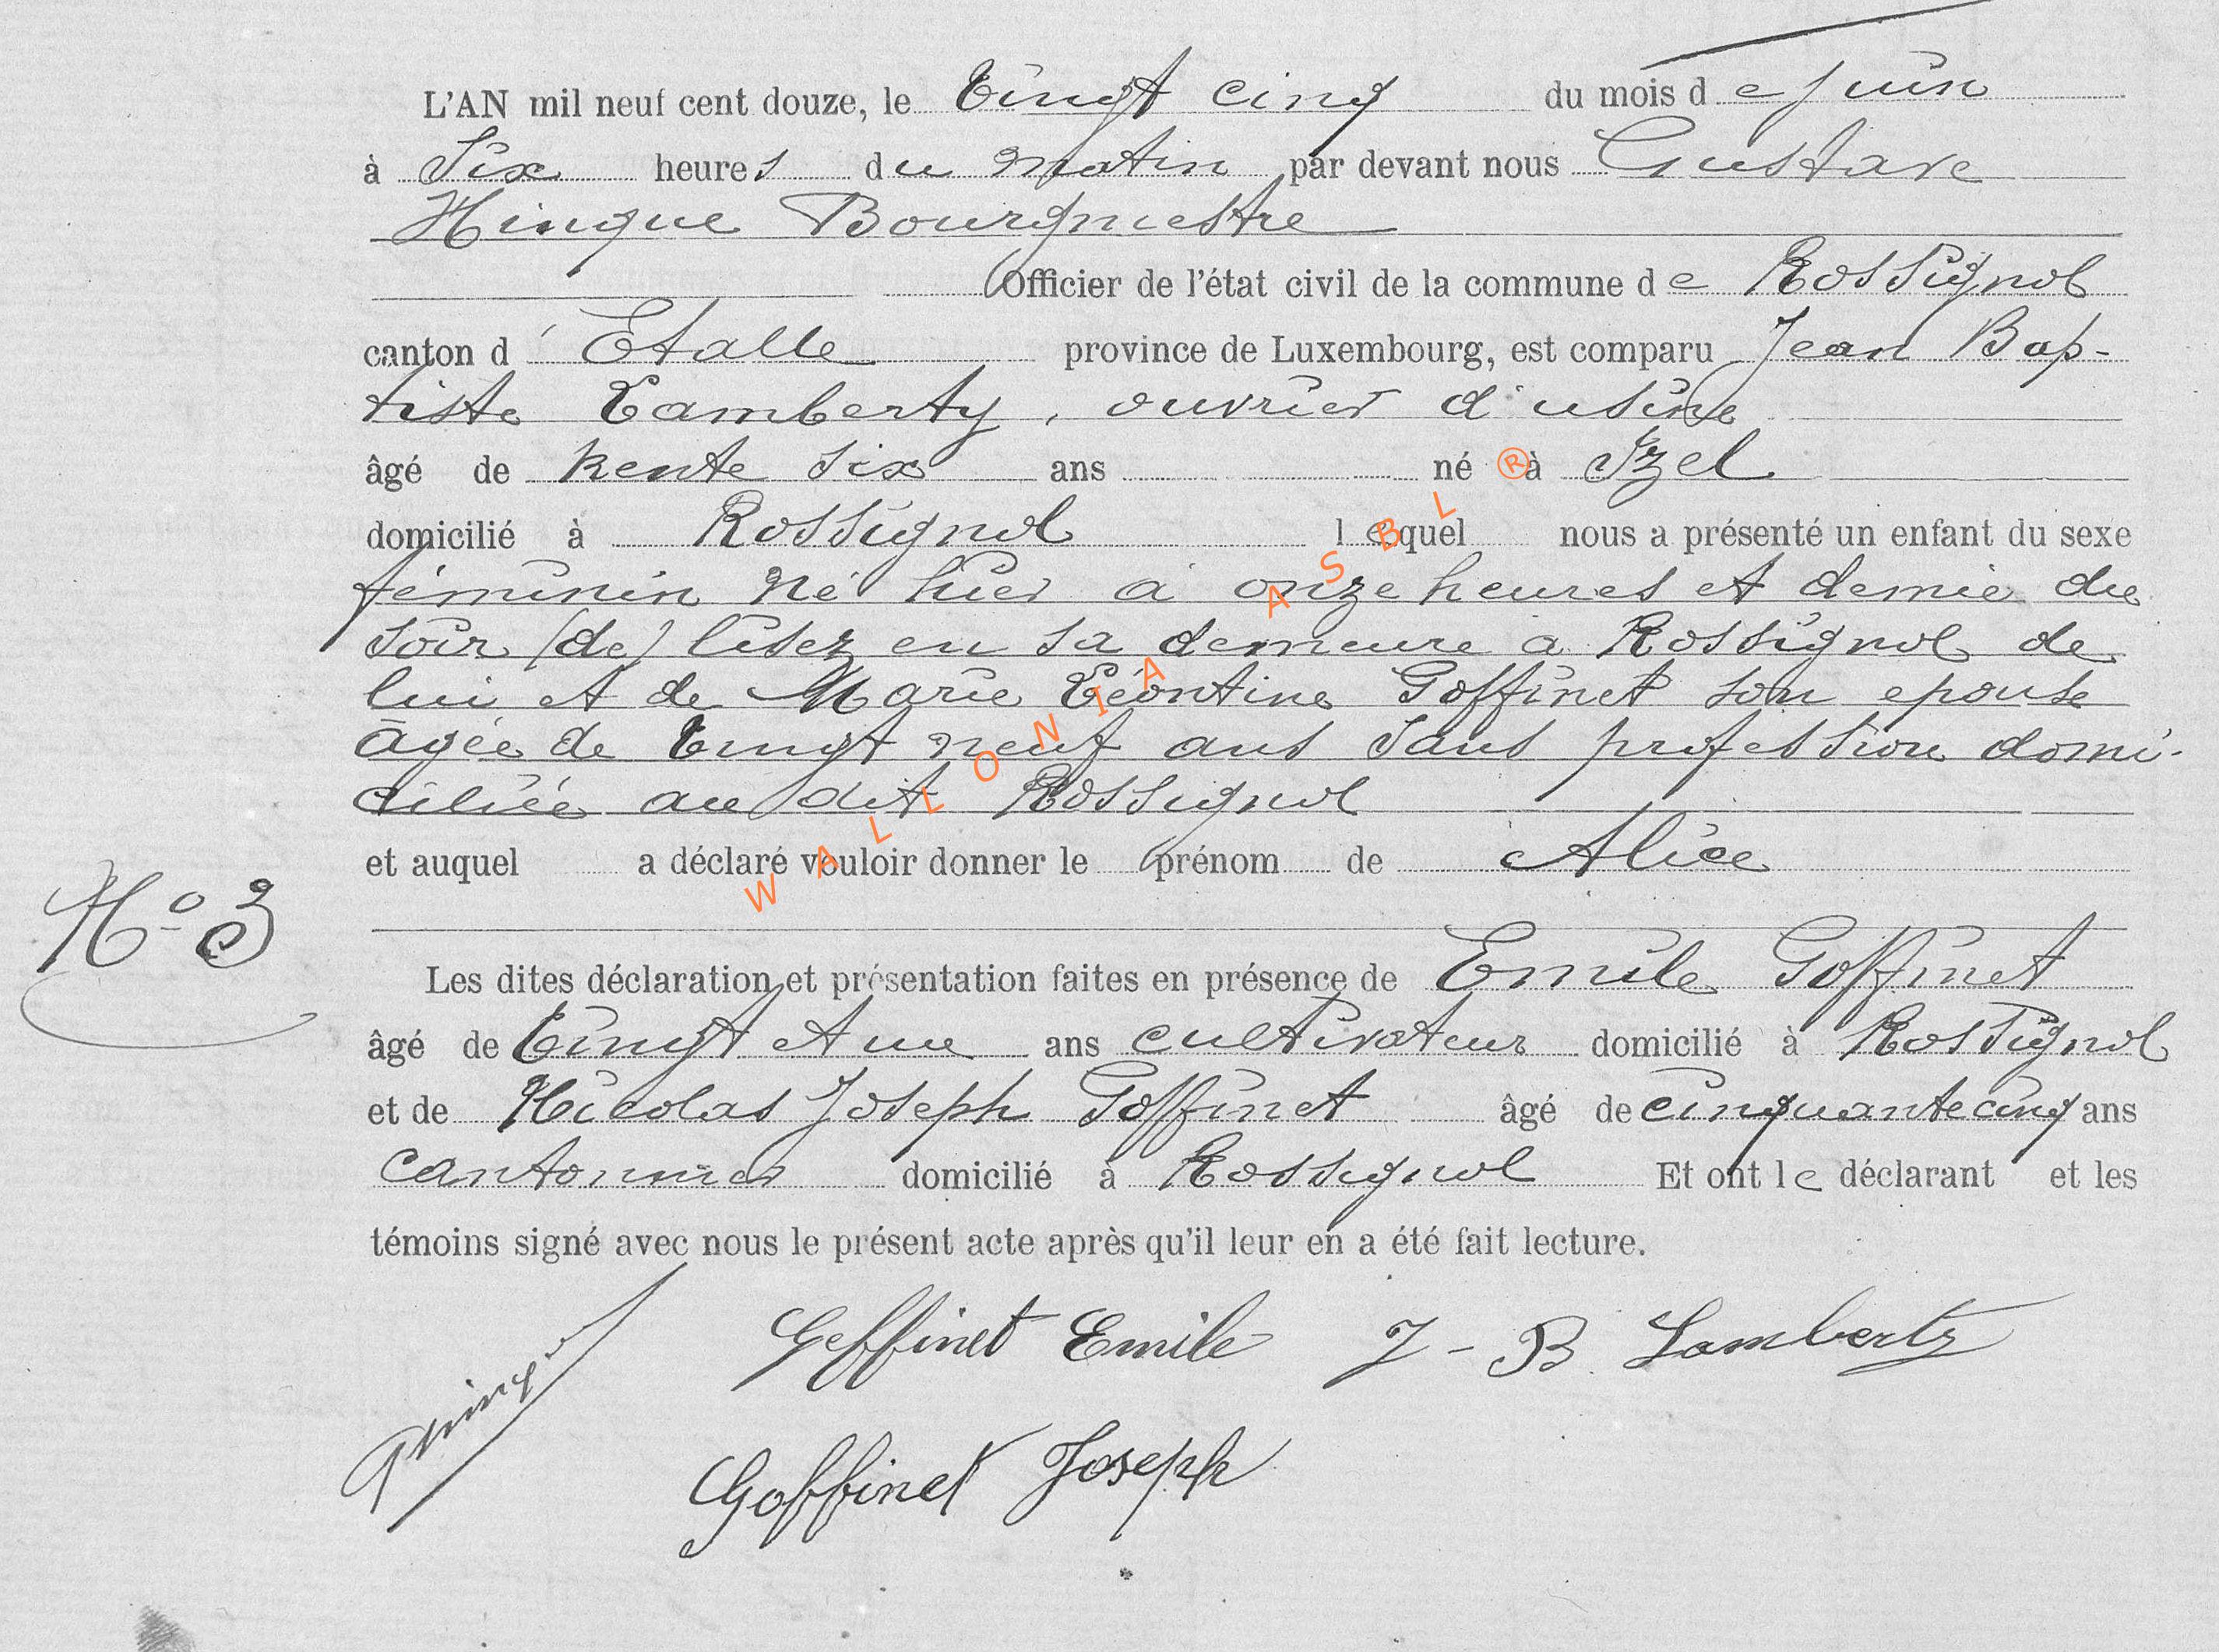 L'AN mil neuf cent douze, le Vingt cinq du mois de juin
à Six heures du matin par devant nous Gustave
Hinque Bourgmestre
Officier de l'état civil de la commune de Rossignol
canton d'Etalle province de Luxembourg, est comparu Jean Bap-
tiste Lamberty, ouvrier d'usine
âgé de trente six ans né à Izel
domicilié à Rossignol lequel nous a présenté un enfant du sexe
féminin né hier à onze heures et demie du
soir (de) lisez en sa demeure a Rossignol de
lui et de Marie Léontine Goffinet son epouse
âgée de Vingt neuf ans sans profession domi-
ciliée au dit Rossignol
et auquel a déclaré vouloir donner le prénom de Alice
N° 3
Les dites déclaration et présentation faites en présence de Emile Goffinet
âgé de Vingt et un ans cultivateur domicilié à Rossignol
et de Nicolas Joseph Goffinet âgé de cinquante cinq ans
cantonnier domicilié à Rossignol Et ont le déclarant et les
témoins signé avec nous le présent acte après qu'il leur en a été fait lecture.
Goffinet Emile J-B Lamberty
Goffinet Joseph
WALLONIA ASBL ®